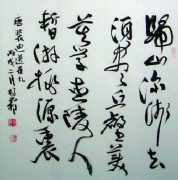 歸山深淺去
須盡丘壑美
莫學武陵人
暫游桃源裏
唐裴迪送崔九
丙戌二月